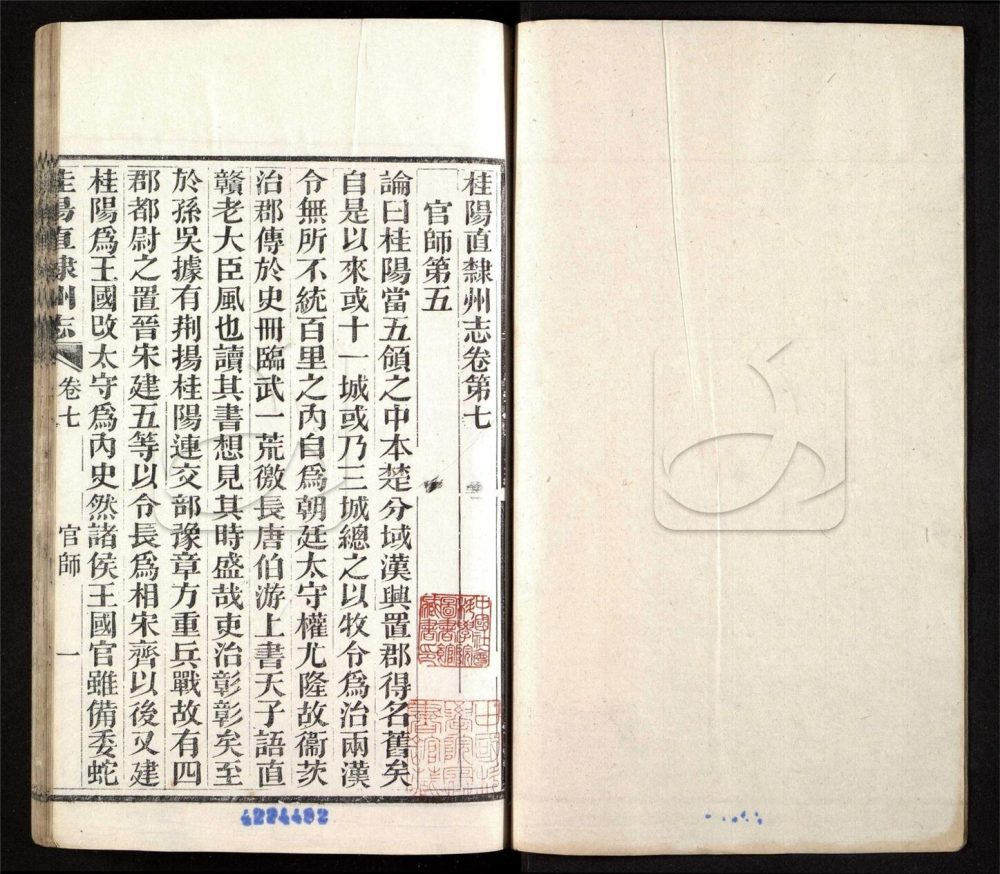 桂陽直隸州志卷第七
官師第五
論曰桂陽當五領之中本楚分域漢興置郡得名舊矣
自是以來或十一城或乃三城總之以牧令爲治兩漢
令無所不統百里之內自爲朝廷太守權尤隆故衞茨
治郡傳於史冊臨武一荒徼長唐伯游上書天子語直
贛老大臣風也讀其書想見其時盛哉吏治彰彰矣至
於孫吳據有荆揚桂陽連交部豫章方重兵戰故有四
郡都尉之置晉宋建五等以令長爲相宋齊以後又建
桂陽爲王國改太守爲內史然諸侯王國官雖備委蛇
桂陽直隸州志 卷七 官師 一
中國社會科學院圖書館藏書印
4224402